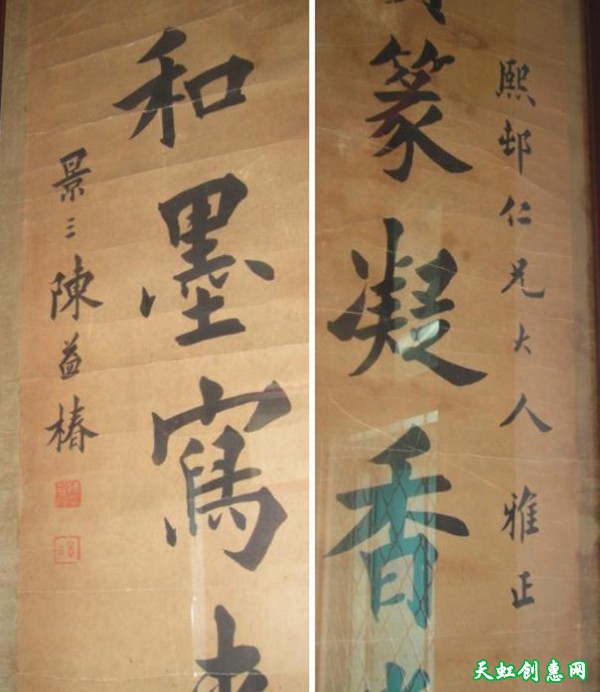 熙邨仁兄大人 雅正
篆凝香
和墨寫
景三陳益椿
天虹创惠网